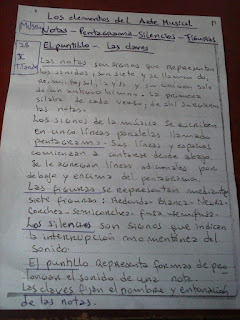 Los elementos del Arte Musical
Notas - Pentagrama - Silencios - Figuras
El puntillo - Las claves
Las notas son signos que representan
los sonidos, son siete y se llaman do,
re, mi, fa, sol, la y si y su
de un antiguo himno. La primera
sílaba de cada verso, de ahí
las notas.
Los signos de la música se escriben
en cinco líneas paralelas llamada
pentagrama. Sus líneas y espacios
comienzan a contarse desde abajo.
Se le agregan líneas adicionales por
debajo y encima del pentagrama
Las figuras se representan mediante
siete figuras: Redonda - Blanca - Negra
Corchea - Semicorchea - fusa - semifusa
Los silencios son signos que indican
la interrupción momentánea del
sonido.
El puntillo representa formas de pro
longar el sonido de una nota
Las claves fijan el nombre y entonación
de las notas.